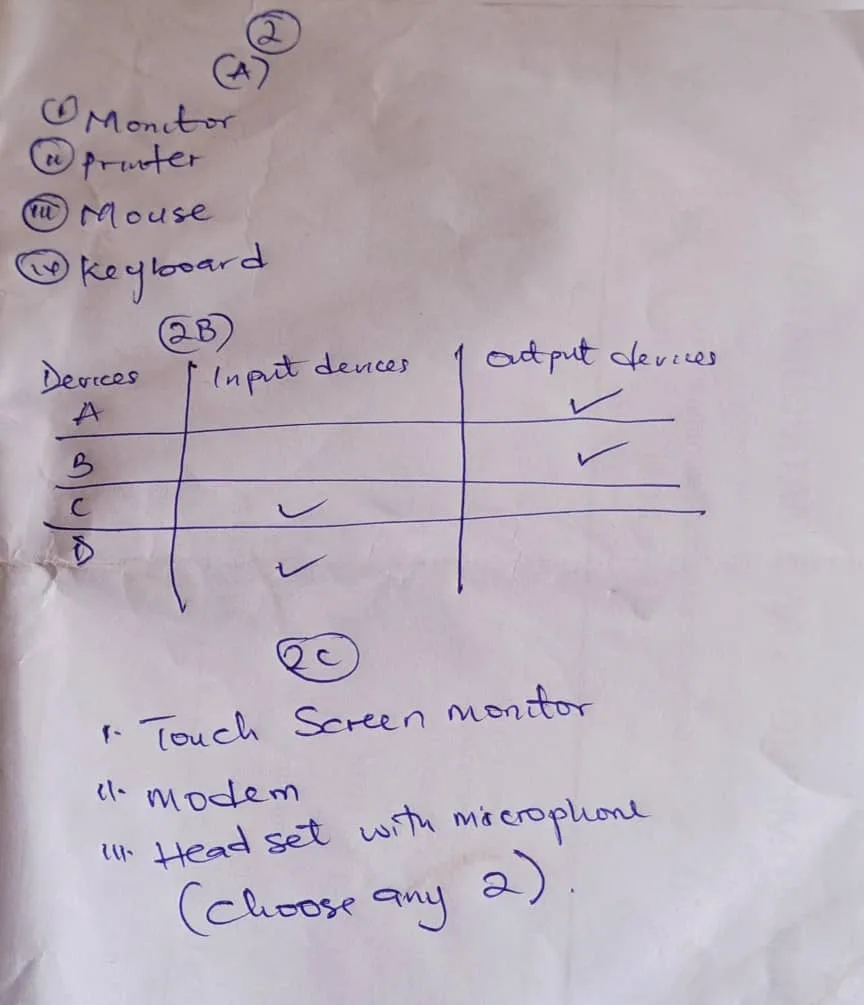 2
(A)
(i) Monitor
(ii) Printer
(iii) Mouse
(iv) Keyboard
(2B)
Devices | Input devices | Output devices
A | | ✓
B | | ✓
C | ✓ |
D | ✓ |
2C
i. Touch Screen monitor
ii. modem
iii. Head set with microphone
(choose any 2).